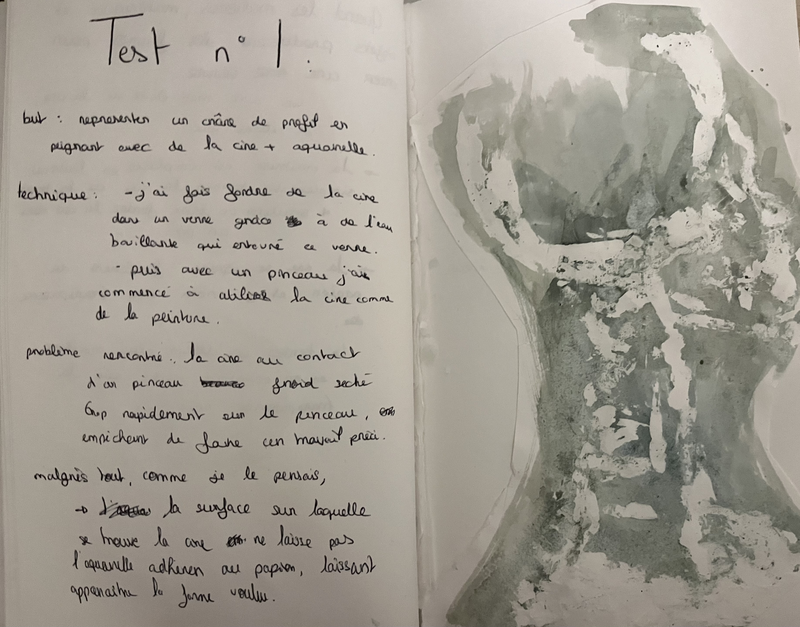 Test n° 1.
but : representer un crâne de profil en
peignant avec de la cire + aquarelle.
technique : - j'ai fais fondre de la cire
dans un verre grâce à de l'eau
bouillante qui entouré ce verre.
- puis avec un pinceau j'ai
commencé à utiliser la cire comme
de la peinture.
problème rencontré : la cire au contact
d'un pinceau froid seché
trop rapidement sur le pinceau,
empêchant de faire un travail préci.
malgrès tout, comme je le pensais,
→ la surface sur laquelle
se trouve la cire ne laisse pas
l'aquarelle adhérer au papier, laissant
apparaitre la forme voulu.